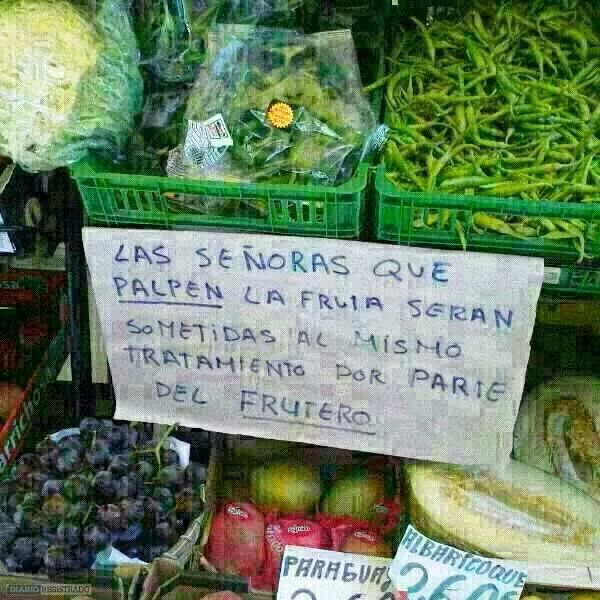 LAS SEÑORAS QUE
PALPEN LA FRUTA SERAN
SOMETIDAS AL MISMO
TRATAMIENTO POR PARTE
DEL FRUTERO
PARAGUA
ALBARICOQUE
2,60
DIARIO REGISTRADO